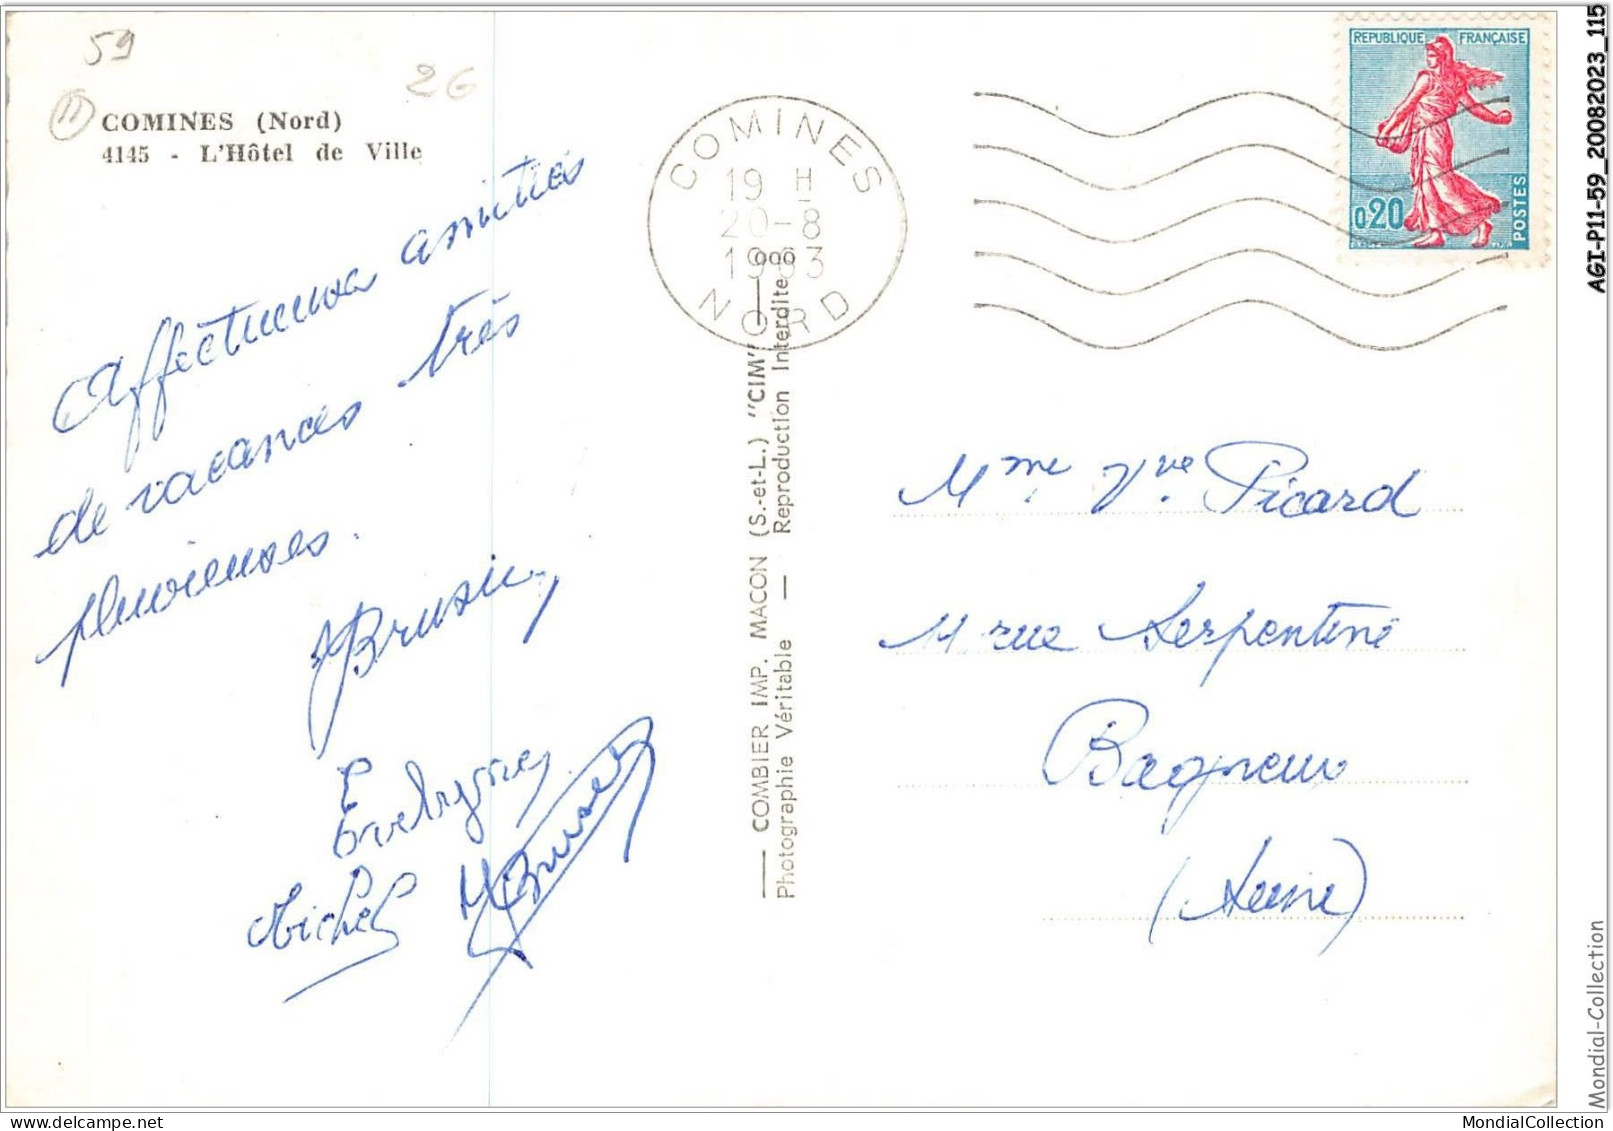 59
26
11
COMINES (Nord)
4145 - L'Hôtel de Ville
Affectueuses amitiés
de vacances très
pluvieuses.
Michel
COMINES
19 H
20-8
1963
NORD
COMBIER IMP. MACON (S.-et-L.) "CIM"
Photographie Véritable — Reproduction Interdite
REPUBLIQUE FRANÇAISE
0,20
POSTES
Mme Vve Picard
11 rue Serpentine
Bagneux
(Seine)
AGI-P11-59_20082023_115
Mondial-Collection
MondialCollection